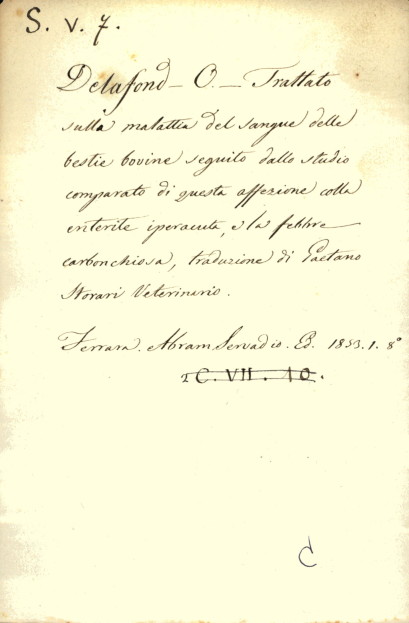 S. v. 7.
Delafond – O. – Trattato
sulla malattia del sangue delle
bestie bovine seguito dallo studio
comparato di questa affezione colla
enterite iperacuta, e la febbre
carbonchiosa, traduzione di Gaetano
Storari Veterinario.
Ferrara. Abram Servadio. Ed. 1853. 1. 8°
C. VII. 10.
C